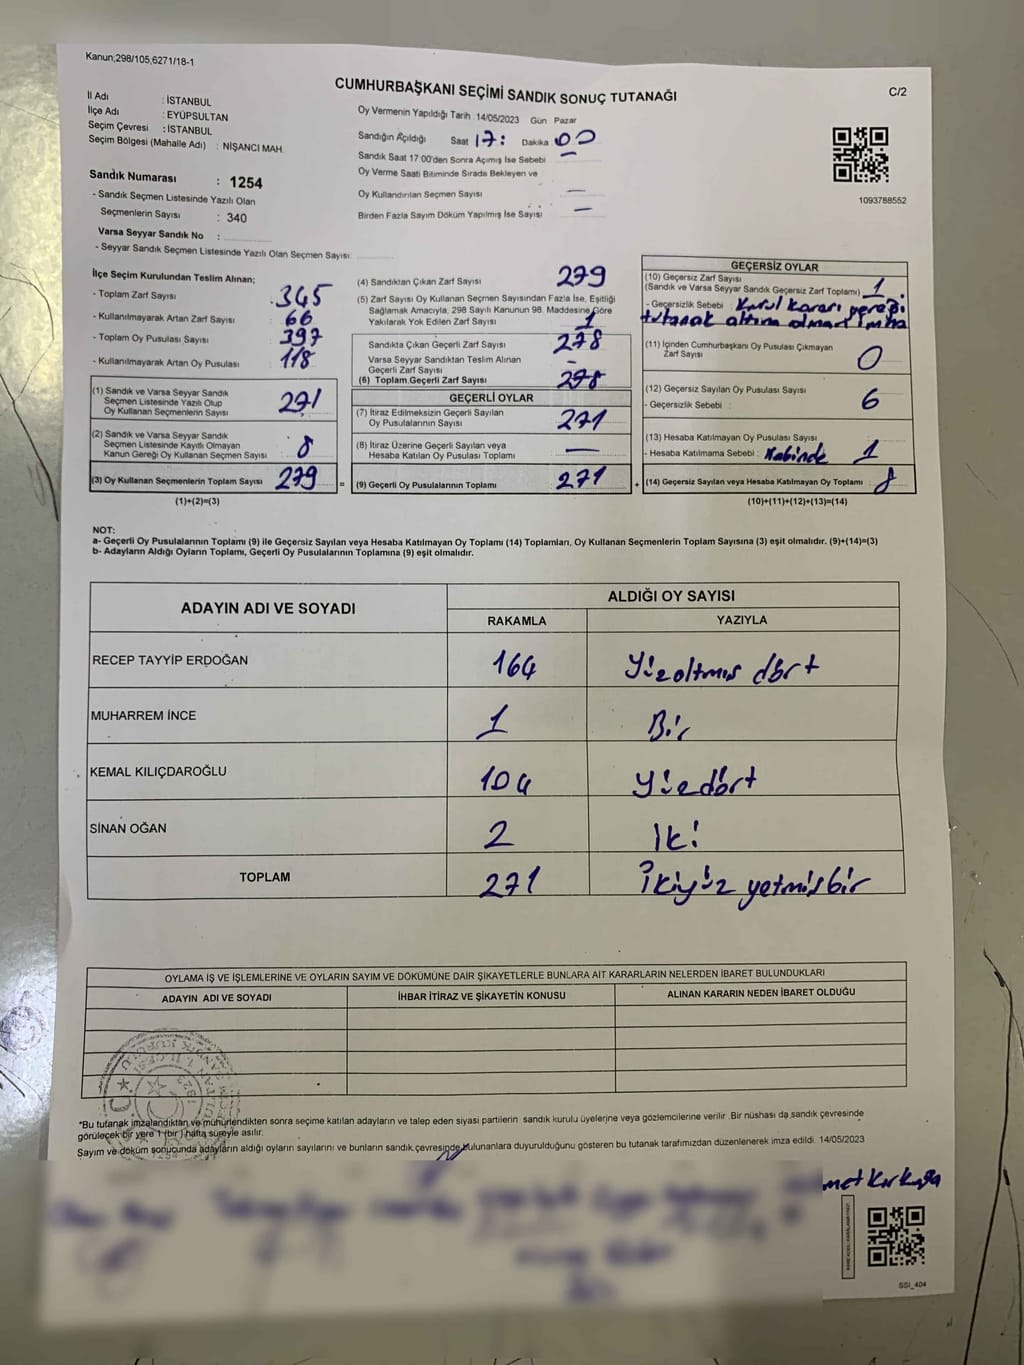 Kanun;298/105,6271/18-1
CUMHURBAŞKANI SEÇİMİ SANDIK SONUÇ TUTANAĞI
C/2
İl Adı : İSTANBUL
İlçe Adı : EYÜPSULTAN
Seçim Çevresi : İSTANBUL
Seçim Bölgesi (Mahalle Adı) : NİŞANCI MAH.
Sandık Numarası : 1254
- Sandık Seçmen Listesinde Yazılı Olan
Seçmenlerin Sayısı : 340
Varsa Seyyar Sandık No :
- Seyyar Sandık Seçmen Listesinde Yazılı Olan Seçmen Sayısı:
Oy Vermenin Yapıldığı Tarih : 14/05/2023 Gün Pazar
Sandığın Açıldığı Saat 17: Dakika 00
Sandık Saat 17:00'den Sonra Açımış İse Sebebi —
Oy Verme Saati Bitiminde Sırada Bekleyen ve
Oy Kullandırılan Seçmen Sayısı —
Birden Fazla Sayım Döküm Yapılmış İse Sayısı —
1093788552
İlçe Seçim Kurulundan Teslim Alınan;
- Toplam Zarf Sayısı : 345
- Kullanılmayarak Artan Zarf Sayısı : 66
- Toplam Oy Pusulası Sayısı : 397
- Kullanılmayarak Artan Oy Pusulası : 118
(1) Sandık ve Varsa Seyyar Sandık
Seçmen Listesinde Yazılı Olup
Oy Kullanan Seçmenlerin Sayısı : 271
(2) Sandık ve Varsa Seyyar Sandık
Seçmen Listesinde Kayıtlı Olmayan
Kanun Gereği Oy Kullanan Seçmen Sayısı : 8
(3) Oy Kullanan Seçmenlerin Toplam Sayısı 279 =
(1)+(2)=(3)
(4) Sandıktan Çıkan Zarf Sayısı 279
(5) Zarf Sayısı Oy Kullanan Seçmen Sayısından Fazla İse, Eşitliği
Sağlamak Amacıyla, 298 Sayılı Kanunun 98. Maddesine Göre
Yakılarak Yok Edilen Zarf Sayısı 1
Sandıkta Çıkan Geçerli Zarf Sayısı : 278
Varsa Seyyar Sandıktan Teslim Alınan
Geçerli Zarf Sayısı —
(6) Toplam Geçerli Zarf Sayısı 278
GEÇERLİ OYLAR
(7) İtiraz Edilmeksizin Geçerli Sayılan
Oy Pusulalarının Sayısı : 271
(8) İtiraz Üzerine Geçerli Sayılan veya
Hesaba Katılan Oy Pusulası Toplamı —
(9) Geçerli Oy Pusulalarının Toplamı 271 +
GEÇERSİZ OYLAR
(10) Geçersiz Zarf Sayısı
(Sandık ve Varsa Seyyar Sandık Geçersiz Zarf Toplamı) 1
- Geçersizlik Sebebi : Kurul kararı gereği
tutanak altına imha
(11) İçinden Cumhurbaşkanı Oy Pusulası Çıkmayan
Zarf Sayısı 0
(12) Geçersiz Sayılan Oy Pusulası Sayısı
- Geçersizlik Sebebi : 6
(13) Hesaba Katılmayan Oy Pusulası Sayısı
- Hesaba Katılmama Sebebi : Kabinde 1
(14) Geçersiz Sayılan veya Hesaba Katılmayan Oy Toplamı 8
(10)+(11)+(12)+(13)=(14)
NOT:
a- Geçerli Oy Pusulalarının Toplamı (9) ile Geçersiz Sayılan veya Hesaba Katılmayan Oy Toplamı (14) Toplamları, Oy Kullanan Seçmenlerin Toplam Sayısına (3) eşit olmalıdır. (9)+(14)=(3)
b- Adayların Aldığı Oyların Toplamı, Geçerli Oy Pusulalarının Toplamına (9) eşit olmalıdır.
ADAYIN ADI VE SOYADI
ALDIĞI OY SAYISI
RAKAMLA YAZIYLA
RECEP TAYYİP ERDOĞAN 164 Yüzaltmış dört
MUHARREM İNCE 1 Bir
KEMAL KILIÇDAROĞLU 104 Yüzdört
SİNAN OĞAN 2 İki
TOPLAM 271 İkiyüz yetmişbir
OYLAMA İŞ VE İŞLEMLERİNE VE OYLARIN SAYIM VE DÖKÜMÜNE DAİR ŞİKAYETLERLE BUNLARA AİT KARARLARIN NELERDEN İBARET BULUNDUKLARI
ADAYIN ADI VE SOYADI İHBAR İTİRAZ VE ŞİKAYETİN KONUSU ALINAN KARARIN NEDEN İBARET OLDUĞU
*Bu tutanak imzalandıktan ve mühürlendikten sonra seçime katılan adayların ve talep eden siyasi partilerin sandık kurulu üyelerine veya gözlemcilerine verilir .Bir nüshası da sandık çevresinde
görülecek bir yere 1 (bir ) hafta süreyle asılır.
Sayım ve döküm sonucunda adayların aldığı oyların sayılarını ve bunların sandık çevresinde bulunanlara duyurulduğunu gösteren bu tutanak tarafımızdan düzenlenerek imza edildi. 14/05/2023
SSI_404